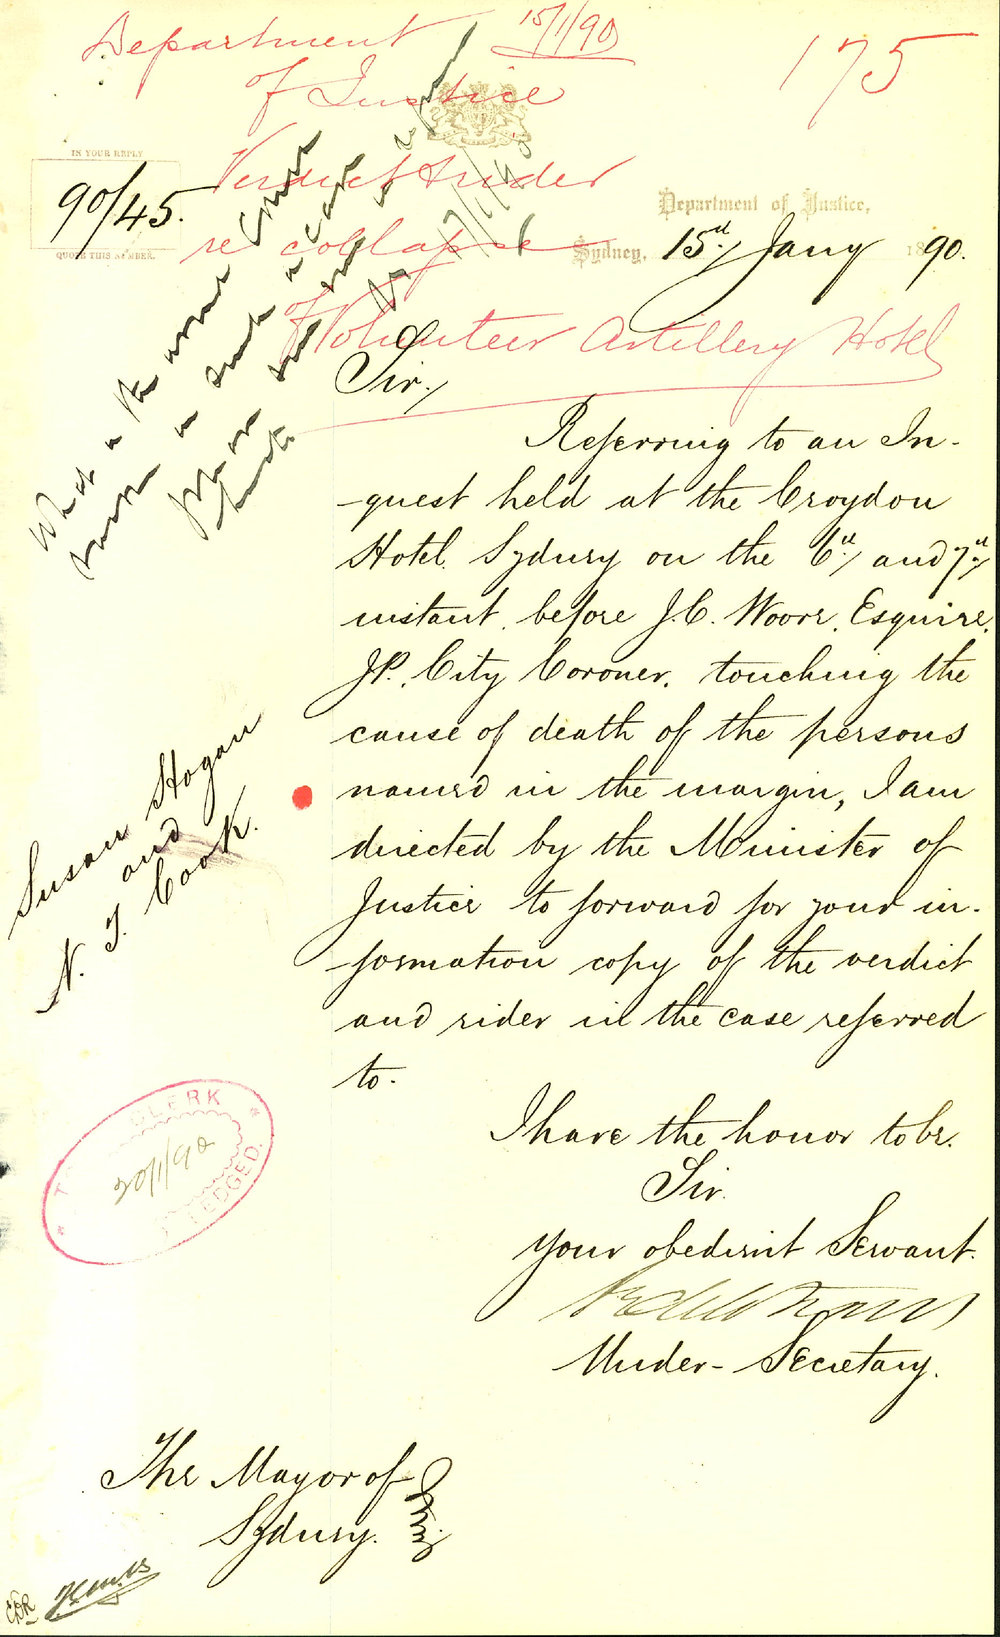 Department 15/1/90
of Justice
175
Verdict & rider
re collapse
of Volunteer Artillery Hotel
IN YOUR REPLY
90/45.
QUOTE THIS NUMBER.
Department of Justice,
Sydney, 15th Jany 1890.
What is the usual course
in such a case
Sir,
Referring to an In-
-quest held at the Croydon
Hotel, Sydney on the 6th and 7th
instant, before J.C. Woore, Esquire,
J.P., City Coroner, touching the
cause of death of the persons
named in the margin, I am
directed by the Minister of
Justice to forward for your in-
-formation copy of the verdict
and rider in the case referred
to.
Susan Hogan
and
N. T. Cook.
I have the honor to be,
Sir,
Your obedient Servant.
Under-Secretary.
CLERK
20/1/90
The Mayor of
Sydney.